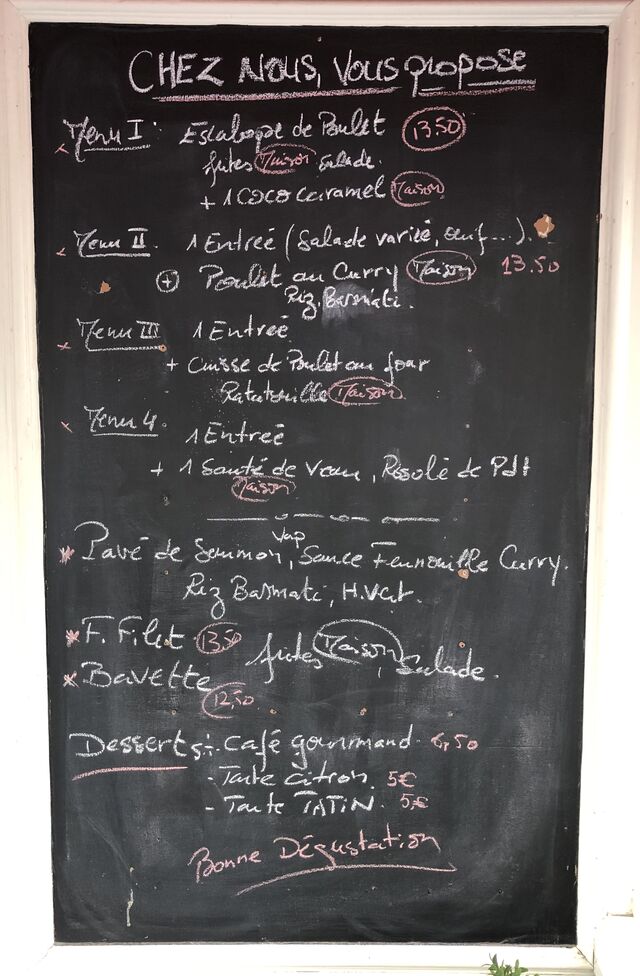 CHEZ NOUS, VOUS propose
Menu I: Escalope de Poulet 13.50
frites Maison Salade.
+ 1 COCO Caramel Maison
Menu II. 1 Entreé (Salade variée, œuf...).
+ Poulet au Curry Maison 13.50
Riz, Basmati.
Menu III 1 Entreé
+ Cuisse de Poulet au four
Ratatouille Maison
Menu 4. 1 Entreé
+ 1 Sauté de Veau, Rissolé de Pdt
Maison
Vap
* Pavé de Saumon, Sauce Fennouille Curry.
Riz Basmati, H.Vert.
* F. Filet 13.50
frites Maison, Salade.
* Bavette
12,50
Desserts: - Café gourmand. 6,50
- Tarte citron. 5€
- Tarte TATIN. 5,€
Bonne Dégustation